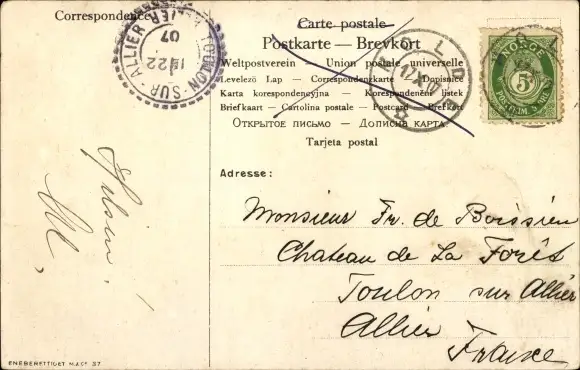 Correspondence
Carte postale
Postkarte — Brevkort
Weltpostverein Union postale universelle
Levelező Lap — Correspondenzkarte — Dopisnice
Karta korespondencyjna — Korespondenční listek
Briefkaart — Cartolina postale — Postcard — Brefkort
Открытое письмо — Дописна карта
Tarjeta postal
TOULON-SUR-ALLIER
ALLIER
22
07
MOLDE
NORGE
5
Adresse:
Monsieur Fr. de Boissieu
Chateau de La Forêt
Toulon sur Allier
Allier
France
Hilsen!
ENEBERETTIGET M.J.Co. 37